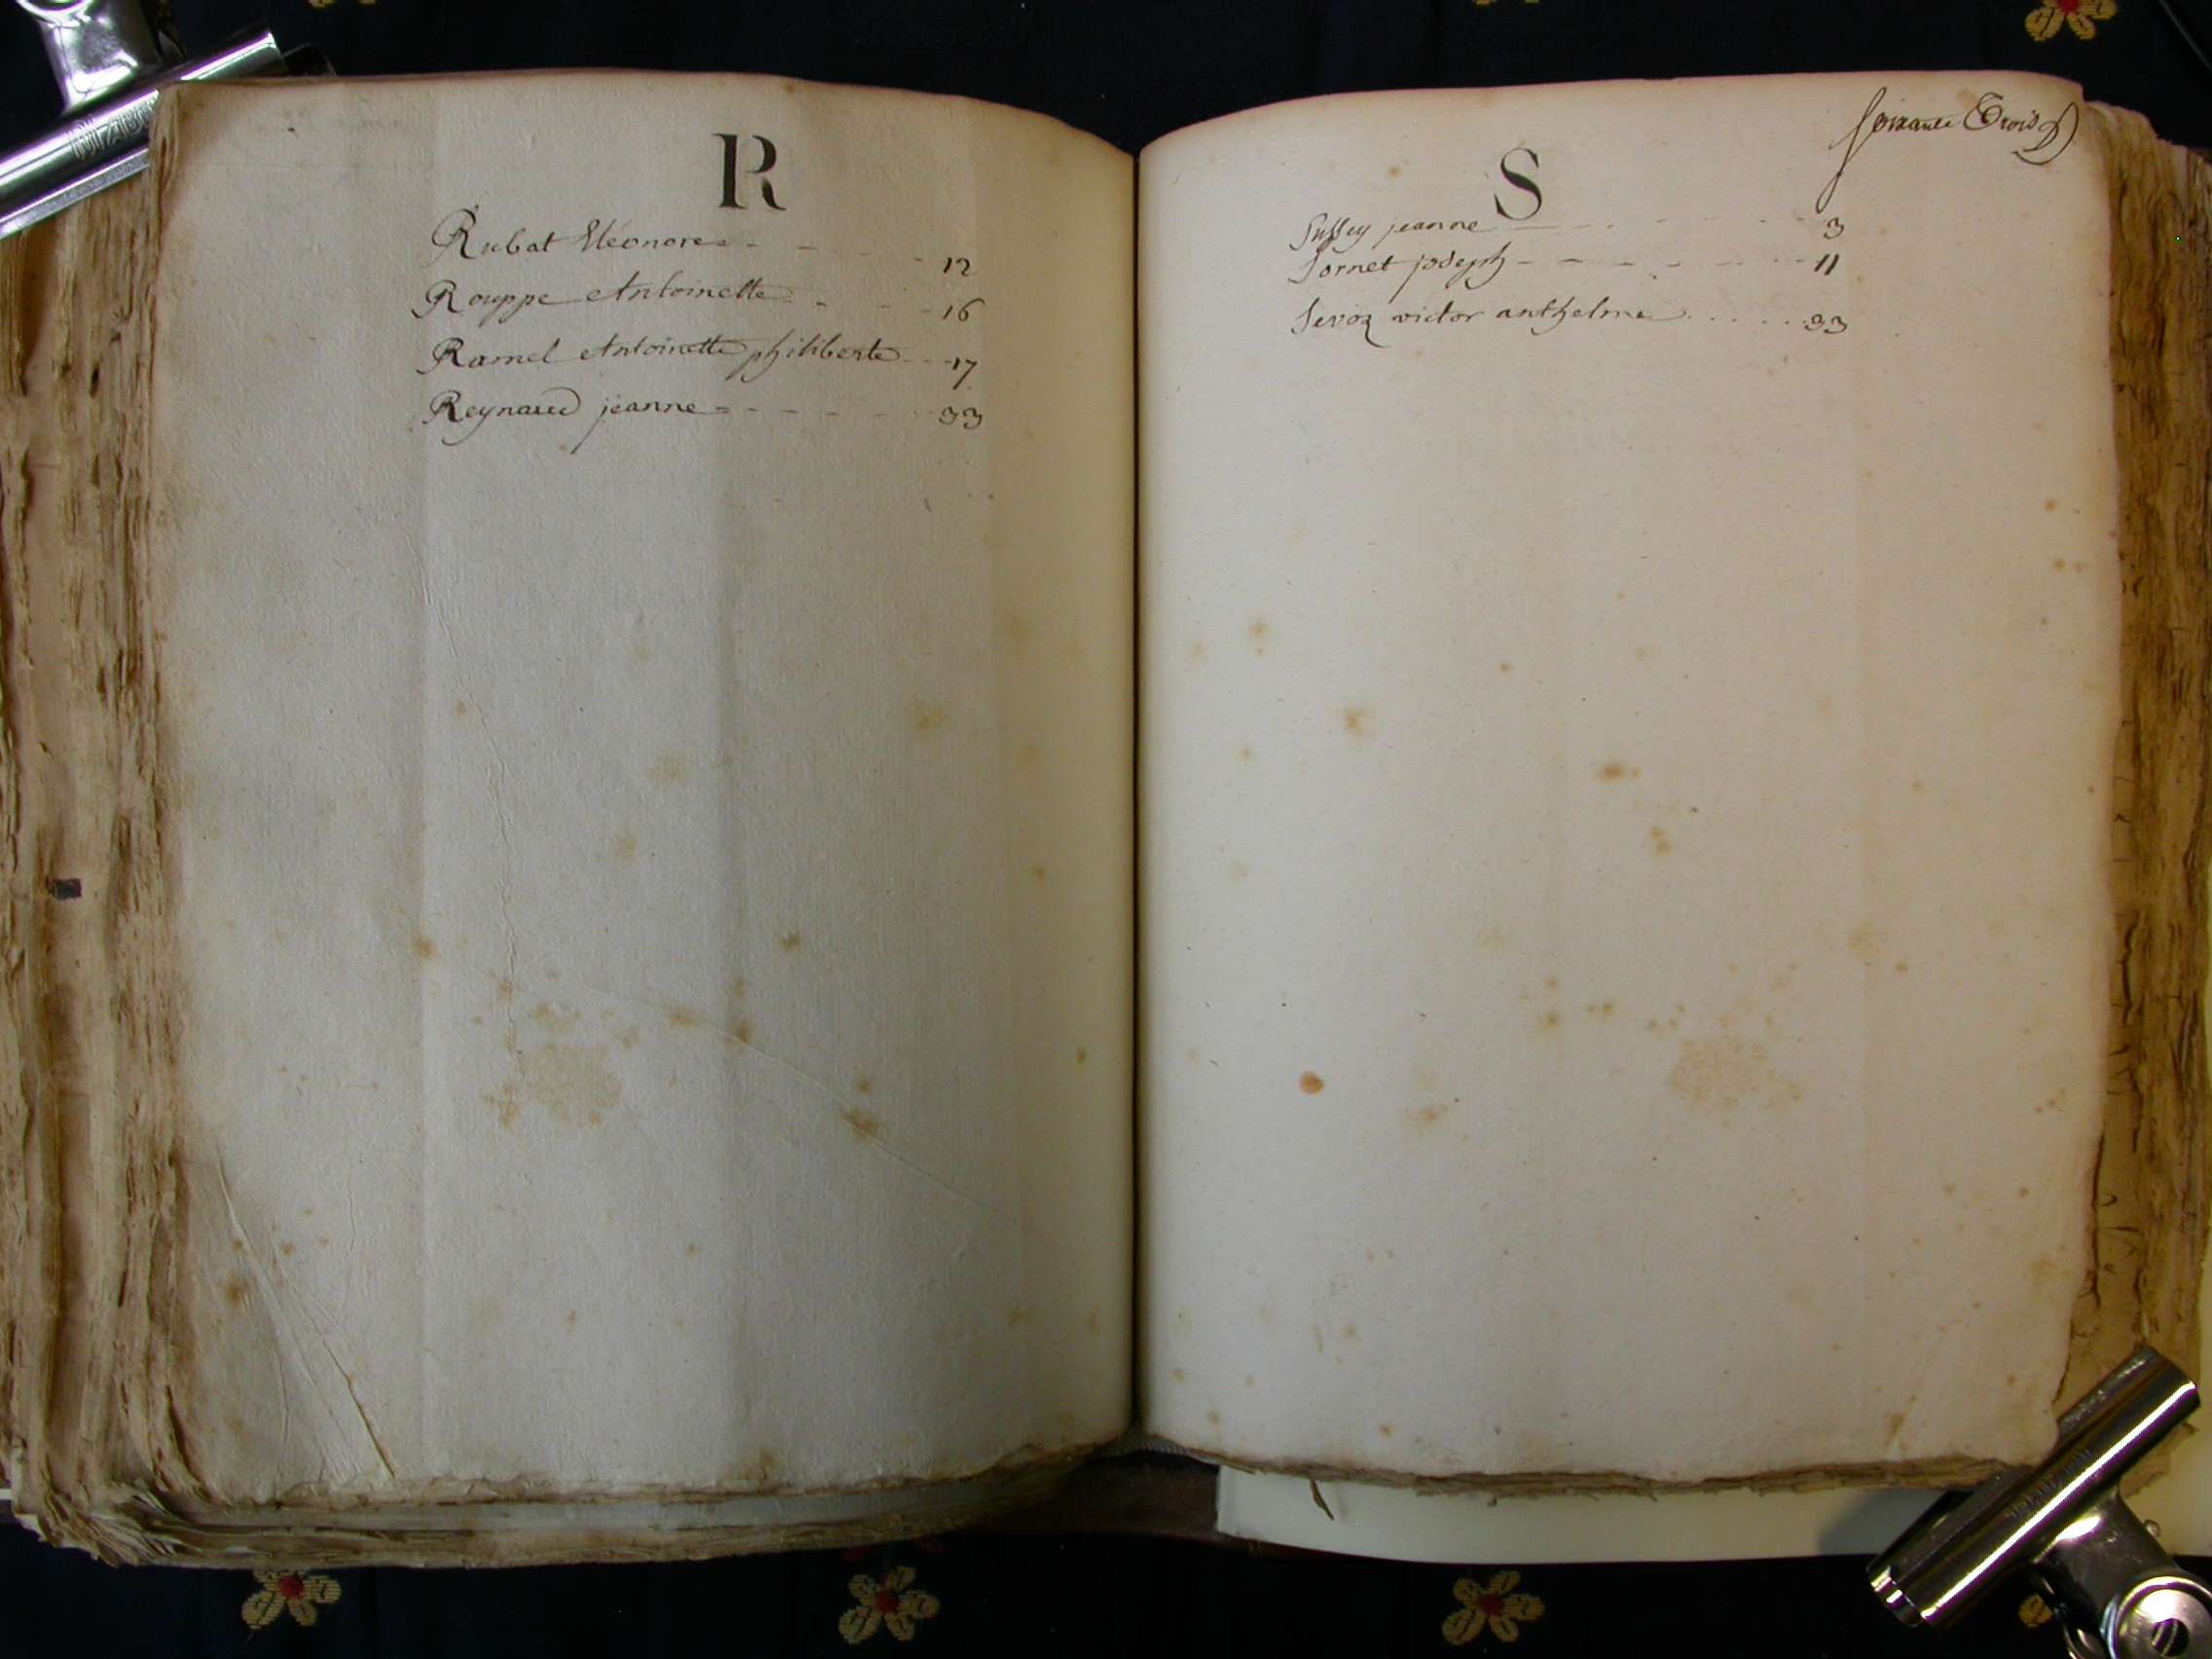 R
Rubat Eléonore - - - - - 12
Rouppe Antoinette - - - 16
Ramel Antoinette philiberte - - 17
Reynaud jeanne = - - - - - 33
Soixante Trois
S
Sussey jeanne - - - - - 3
Sornet joseph - - - - - - - 11
Sevoz victor anthelme . . . . . . 33